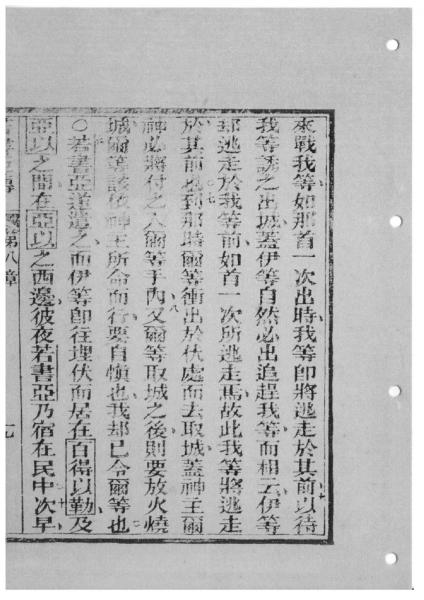 來戰我等如那首一次出時我等卽將逃走於其前以待
我等誘之出城蓋伊等自然必出追趕我等而相云伊等
却逃走於我等前如首一次所逃走焉故此我等將逃走
於其前也到那時爾等衝出於伏處而去取城蓋神主爾
神必將付之入爾等手內又爾等取城之後則要放火燒
城爾等該依神主所命而行要自愼也我却已令爾等也
○若書亞遂遣之而伊等卽往埋伏而居在百得以勒及
亞以之間在亞以之西邊彼夜若書亞乃宿在民中次早
第八章